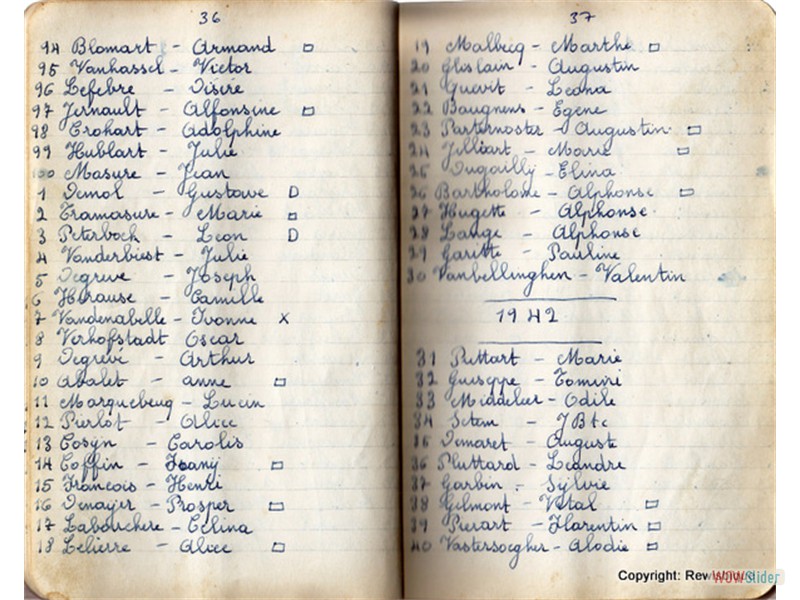 36
94 Blomart - Armand □
95 Vanhassel - Victor
96 Lefebre - Désiré
97 Jernault - Alfonsine □
98 Crohart - Adolphine
99 Hublart - Julie
100 Masure - Jean
1 Demol - Gustave D
2 Tramasure - Marie □
3 Peterbock - Leon D
4 Vanderbiest - Julie
5 Degreve - Joseph
6 Herause - Camille
7 Vandenabelle - Ivonne x
8 Verhofstadt Oscar
9 Degrevé - Arthur
10 Abalet - anne □
11 Marquebeug - Lucin
12 Pierlot - Alice
13 Cosyn - Carolis
14 Coffin - Fany □
15 Francois - Henri
16 Denayer - Prosper □
17 Labouchere - Celina
18 Lelierre - Alice □
37
19 Malbecq - Marthe □
20 Ghislain - Augustin
21 Quevit - Leona
22 Baugnens - Egene
23 Parternoster - Augustin □
24 Jilliart - Marie □
25 Dugailly - Elina
26 Bartholome - Alphonse □
27 Hugette - Alphonse
28 Lange - Alphonse
29 Garitte - Pauline
30 Vanbellinghen - Valentin
1942
31 Puttart - Marie
32 Guiseppe -
33 Middeleer - Odile
34 - J Bte
35 Demaret - Auguste
36 Pluttard - Leandre
37 Garbin - Sylvie
38 Gilmont - Vital □
39 Pierart - Florentin □
40 Vastersoegher - Alodie □
Copyright: Rew
WOWSlider